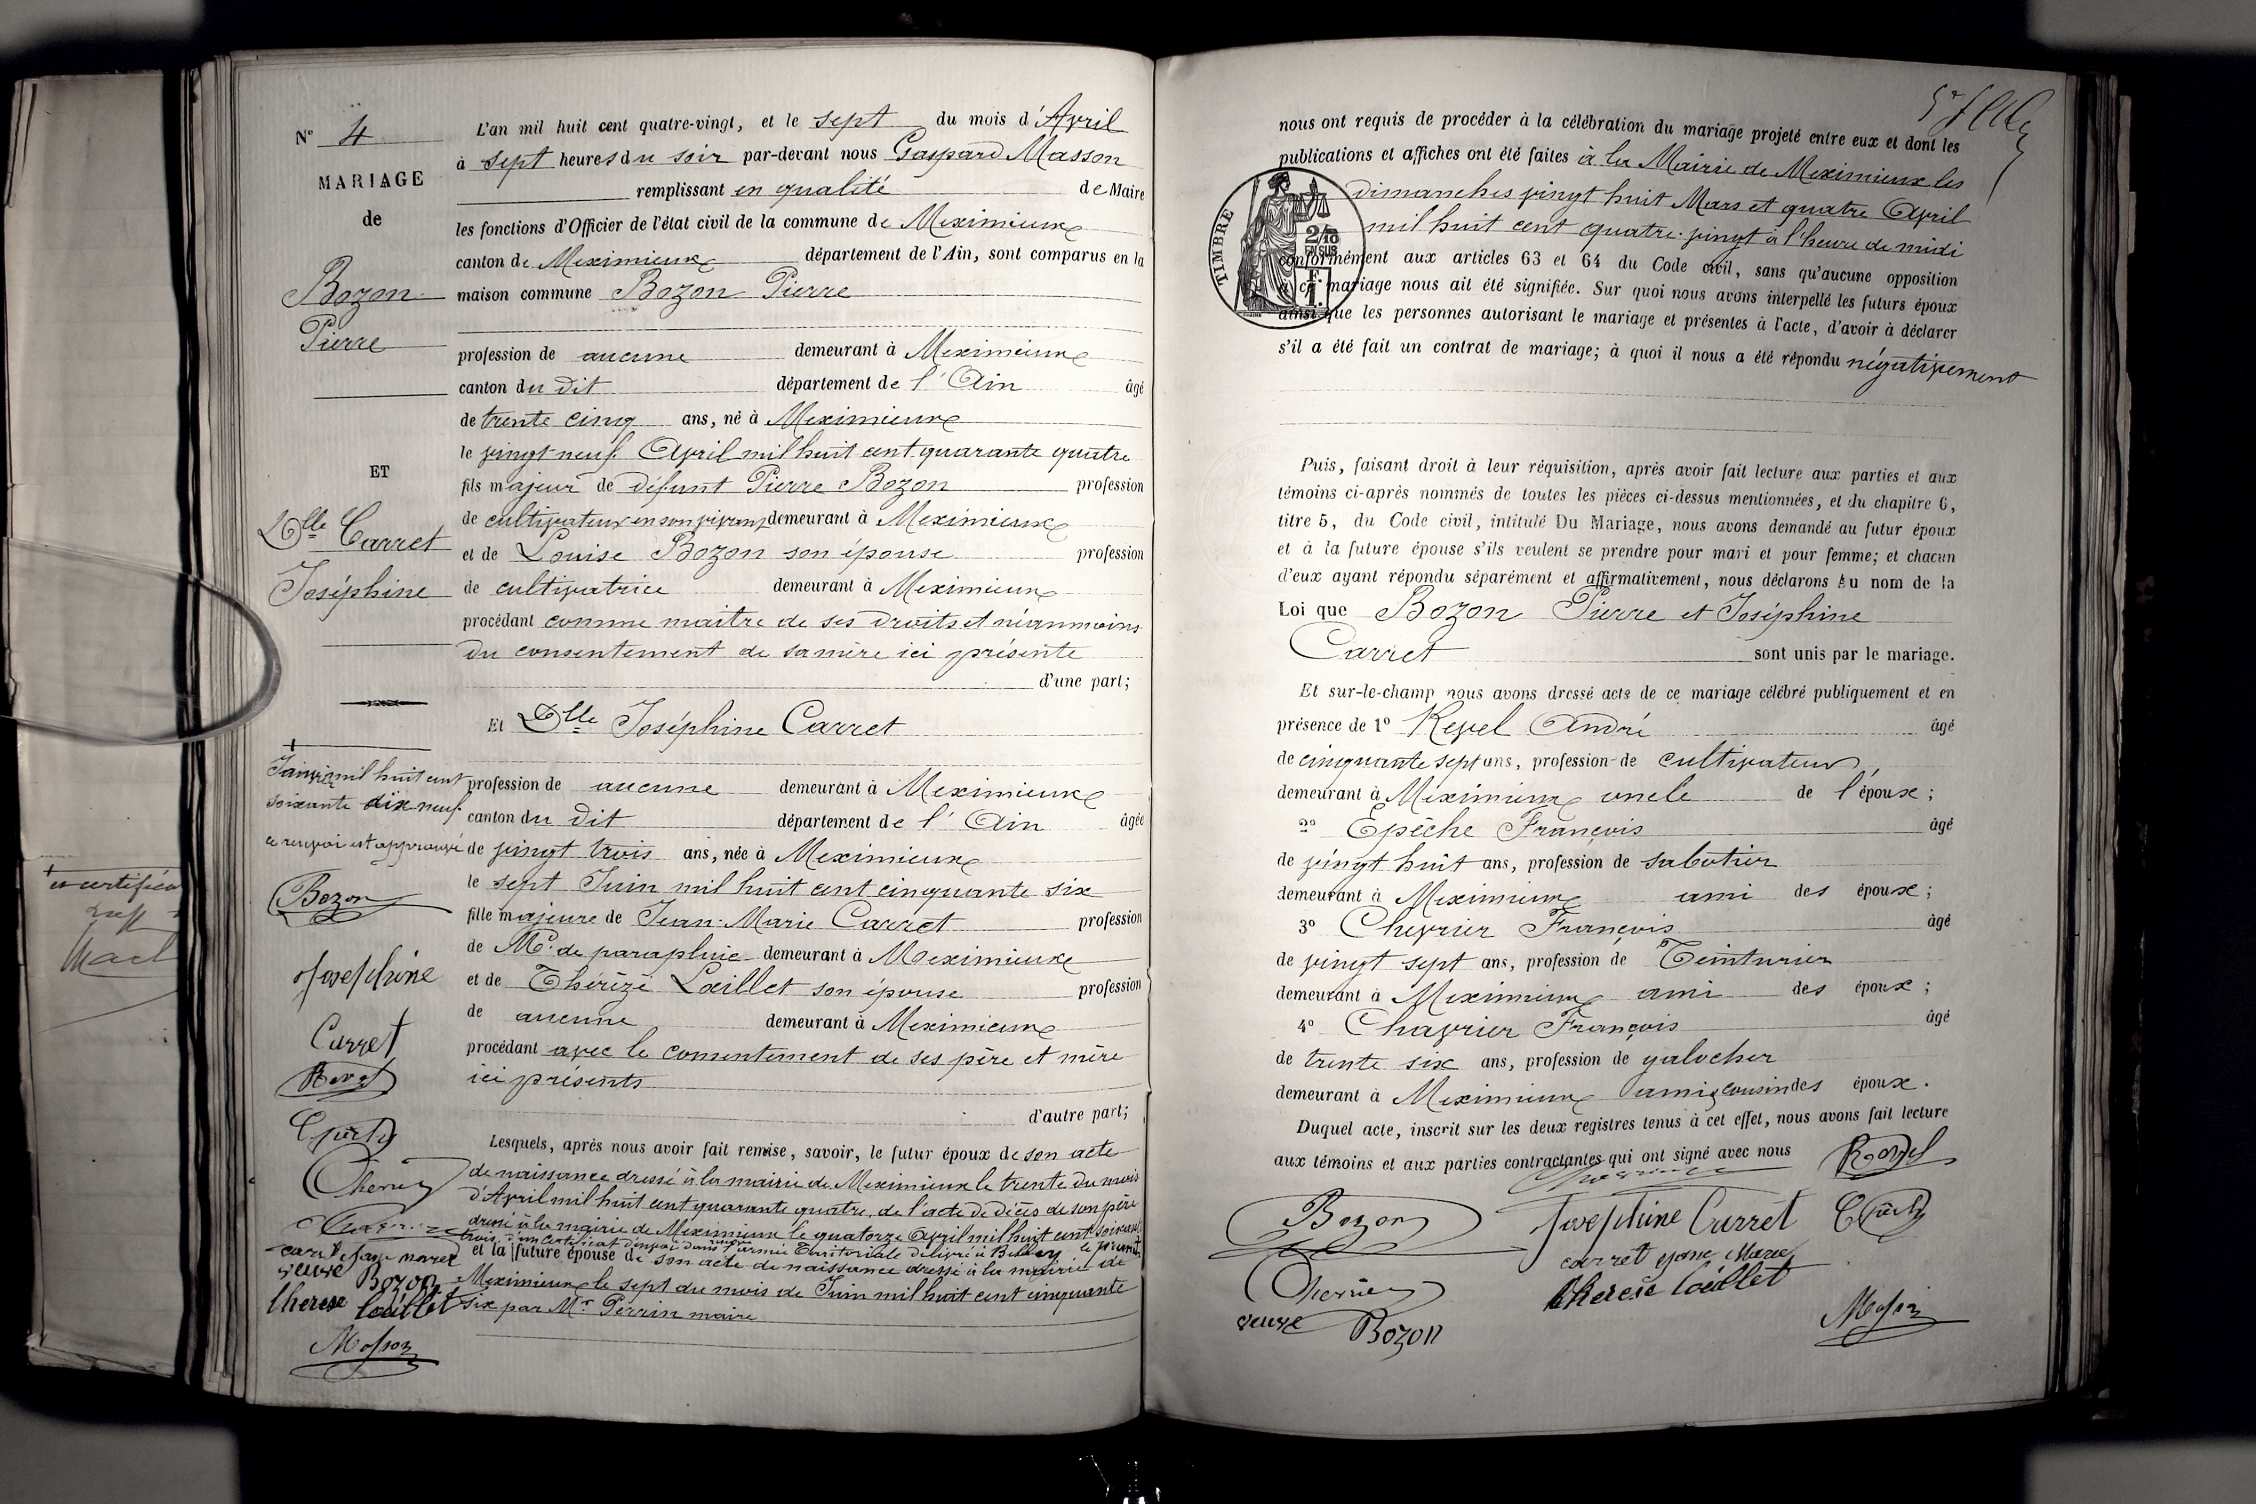 N° 4
MARIAGE
de
Bozon
Pierre
ET
Dlle Carret
Joséphine
L'an mil huit cent quatre-vingt, et le sept du mois d'Avril
à sept heures du soir par-devant nous Gaspard Masson
remplissant en qualité de Maire
les fonctions d'Officier de l'état civil de la commune de Meximieux
canton de Meximieux département de l'Ain, sont comparus en la
maison commune Bozon Pierre
profession de aucune demeurant à Meximieux
canton du dit département de l'Ain âgé
de trente cinq ans, né à Meximieux
le vingt-neuf Avril mil huit cent quarante quatre
fils majeur de défunt Pierre Bozon profession
de cultivateur en son vivant demeurant à Meximieux
et de Louise Bozon son épouse profession
de cultivatrice demeurant à Meximieux
procédant comme maître de ses droits et néanmoins
du consentement de sa mère ici présente
d'une part;
Et Dlle Joséphine Carret
profession de aucune demeurant à Meximieux
canton du dit département de l'Ain âgée
de vingt trois ans, née à Meximieux
le sept Juin mil huit cent cinquante six
fille majeure de Jean-Marie Carret profession
de Md. de parapluie demeurant à Meximieux
et de Thérèze Lœillet son épouse profession
de aucune demeurant à Meximieux
procédant avec le consentement de ses père et mère
ici présents
d'autre part;
Lesquels, après nous avoir fait remise, savoir, le futur époux de son acte
de naissance dressé à la mairie de Meximieux le trente du mois
d'Avril mil huit cent quarante quatre, de l'acte de décès de son père
dressé à la mairie de Meximieux le quatorze Avril mil huit cent soixante
trois, d'un certificat d'envoi dans l'armée Territoriale délivré à Belley le
et la future épouse de son acte de naissance dressé à la mairie de
Meximieux le sept du mois de Juin mil huit cent cinquante
six par Mr Perrin maire
Janvier mil huit cent
soixante dix neuf
ce renvoi est approuvé
Bozon
Josephine
Carret
Revel
Epèche
veuve Bozon
therese loeillet
Masson
nous ont requis de procéder à la célébration du mariage projeté entre eux et dont les
publications et affiches ont été faites à la Mairie de Meximieux les
dimanches vingt huit Mars et quatre Avril
mil huit cent quatre-vingt à l'heure de midi
conformément aux articles 63 et 64 du Code civil, sans qu'aucune opposition
à ce mariage nous ait été signifiée. Sur quoi nous avons interpellé les futurs époux
ainsi que les personnes autorisant le mariage et présentes à l'acte, d'avoir à déclarer
s'il a été fait un contrat de mariage; à quoi il nous a été répondu négativement
TIMBRE
2/10
EN SUS
Puis, faisant droit à leur réquisition, après avoir fait lecture aux parties et aux
témoins ci-après nommés de toutes les pièces ci-dessus mentionnées, et du chapitre 6,
titre 5, du Code civil, intitulé Du Mariage, nous avons demandé au futur époux
et à la future épouse s'ils veulent se prendre pour mari et pour femme; et chacun
d'eux ayant répondu séparément et affirmativement, nous déclarons au nom de la
Loi que Bozon Pierre et Joséphine
Carret sont unis par le mariage.
Et sur-le-champ nous avons dressé acte de ce mariage célébré publiquement et en
présence de 1° Revel André âgé
de cinquante sept ans, profession de cultivateur,
demeurant à Meximieux oncle de l'époux;
2° Epèche François âgé
de vingt huit ans, profession de sabotier
demeurant à Meximieux ami des époux;
3° Chevrier François âgé
de vingt sept ans, profession de Teinturier
demeurant à Meximieux ami des époux;
4° Chavrier François âgé
de trente six ans, profession de galocher
demeurant à Meximieux ami & cousin des époux.
Duquel acte, inscrit sur les deux registres tenus à cet effet, nous avons fait lecture
aux témoins et aux parties contractantes qui ont signé avec nous
Revel
Bozon
Josephine Carret
Epèche
carret
therese loeillet
veuve Bozon
Masson